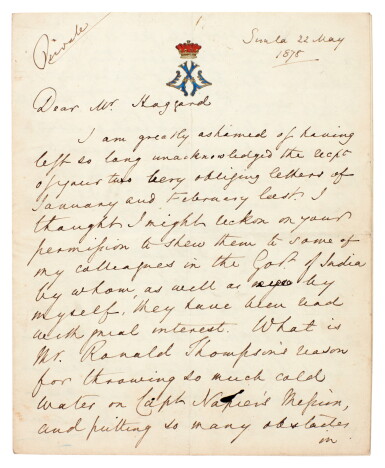 Private
Simla 22 May
1878
Dear Mr Haggard
I am greatly ashamed of having
left so long unacknowledged the rec​pt
of your two very obliging letters of
January and February last. I
thought I might reckon on your
permission to shew them to some of
my colleagues in the Govt of India
by whom, as well as by
myself, they have been read
with great interest. What is
Mr. Ronald Thompson's reason
for throwing so much cold
water on Capt Napier's Mission,
and putting so many obstacles
in